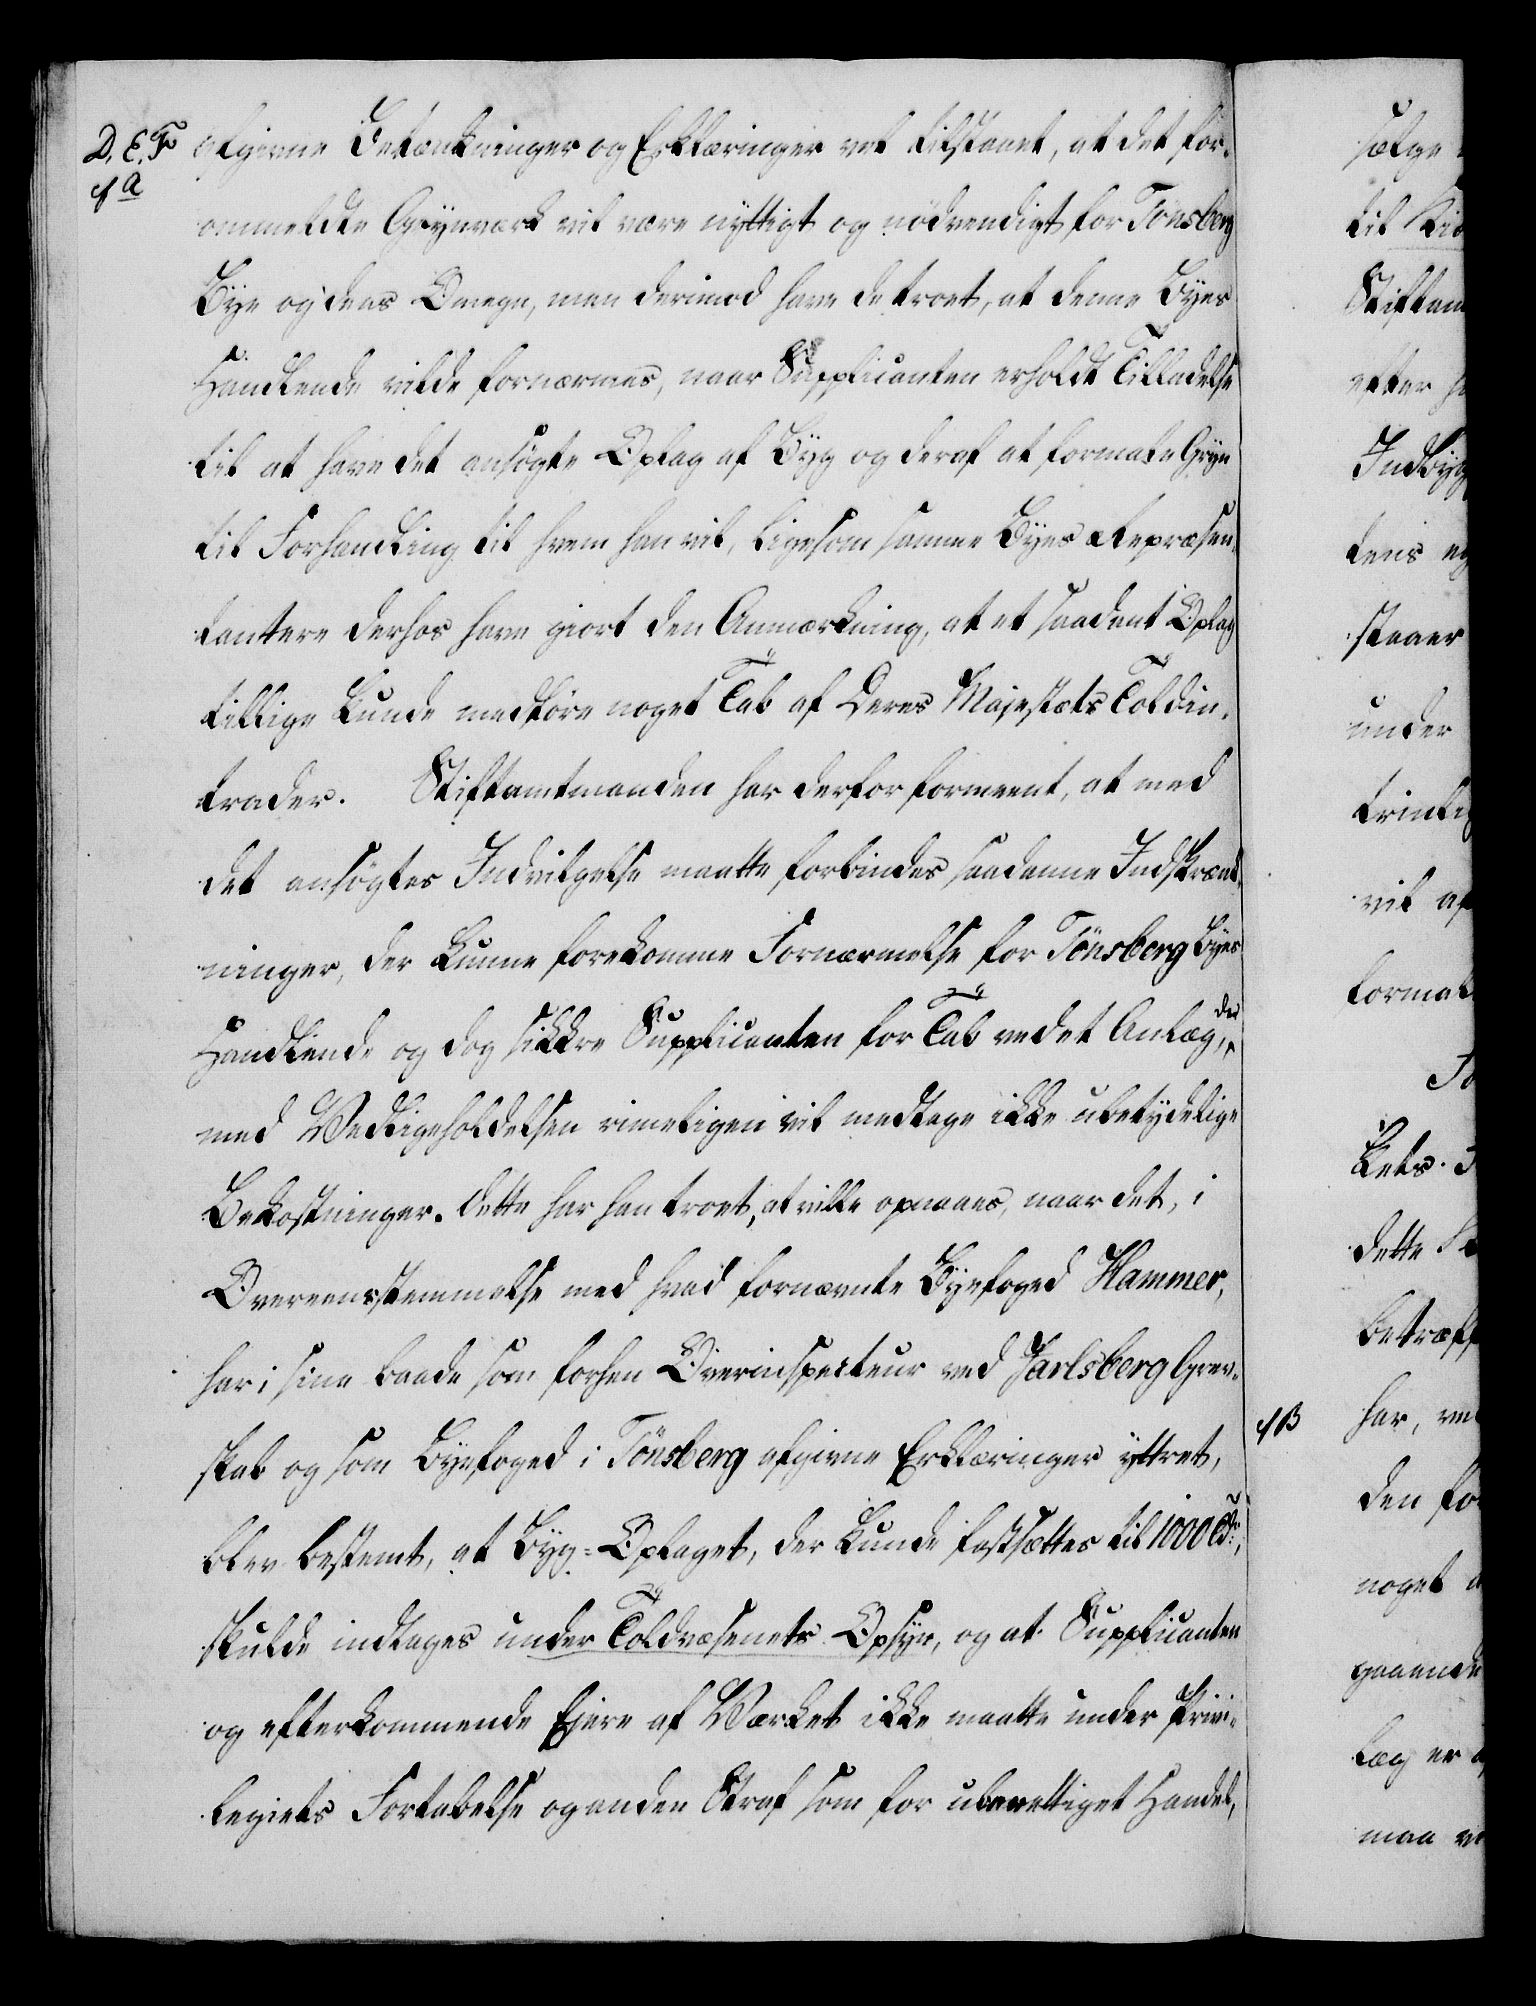 D. E. F
cf a
afgivne Betænkninger og Erklæringer vel tilstaaet, at det for-
ommeldte Grynværk vil være nyttigt og nødvendigt for Tönsberg
Bye og dens Omegn, men derimod have de troet, at denne Byes
Handlende vilde fornærmes, naar Supplicanten erholdt Tilladelse
til at have det ansøgte Oplag af Byg og deraf at formale Gryn
til Forhandling til hvem han vil, ligesom samme Byes Repræsen-
tantere derhos have giort den Anmærkning, at et saadant Oplag
tillige kunde medføre noget Tab af Deres Majestæts Toldin-
trader. Stiftamtmanden har derfor formeent, at med
det ansøgtes Indvilgelse maatte forbindes saadanne Indskrænk-
ninger, der kunne forekomme Fornærmelse for Tönsberg Byes
Handlende og dog sikkre Supplicanten for Tab ved et Anlæg, der
med Vedligeholdelsen rimeligen vil medtage ikke ubetydelige
Bekostninger. Dette har han troet, at ville opnaaes, naar det, i
Overeensstemmelse med hvad fornævnte Byefoged Hammer,
har i sine baade som forhen Overinspecteur ved Jarlsberg Grev-
skab og som Byefoged i Tönsberg afgivne Erklæringer yttret,
blev bestemt, at Byg-Oplaget, der kunde fastsættes til 1000 Tdr,
skulde indtages under Toldvæsenets Opsyn, og at Supplicanten
og efterkommende Ejere af Værket ikke maatte under Privi-
legiets Fortabelse og anden Straf som for uberettiget Handel,
sælge
til
Stiftam
efter
Indbyg
tens
staaer
under
vil af
formal
dette
betræff
cf B
har, ve
den for
noget
gaaende
læg er
maa